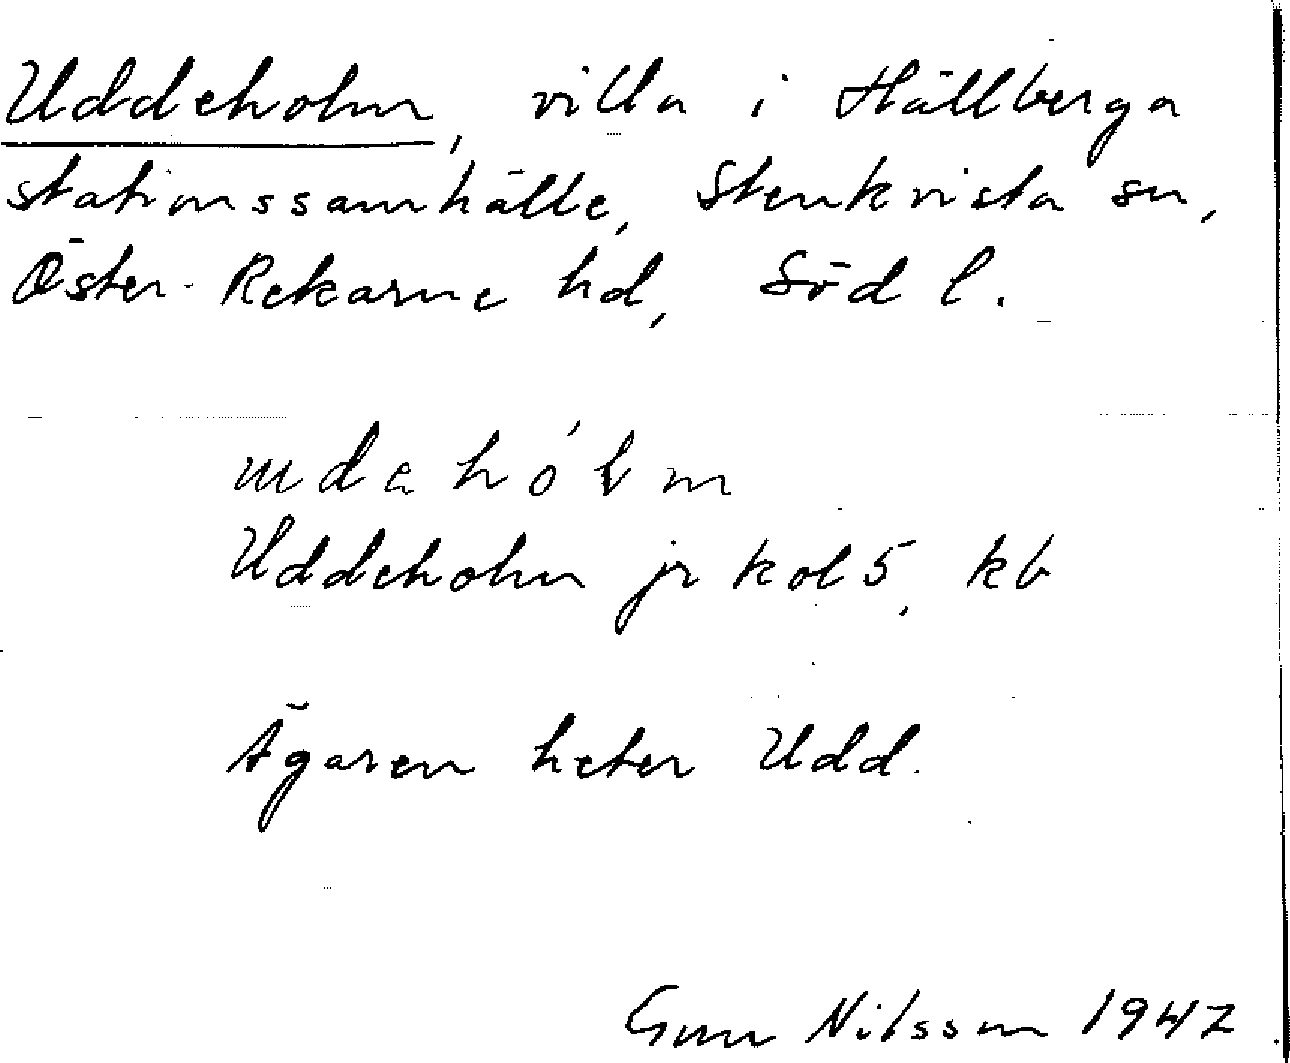 Uddeholm, villa i Hällberga
stationssamhälle, Stenkvista sn,
Öster-Rekarne hd, Söd l.
udehólm
Uddeholm jr kol 5, kb
Ägaren heter Udd.
Gun Nilsson 1947